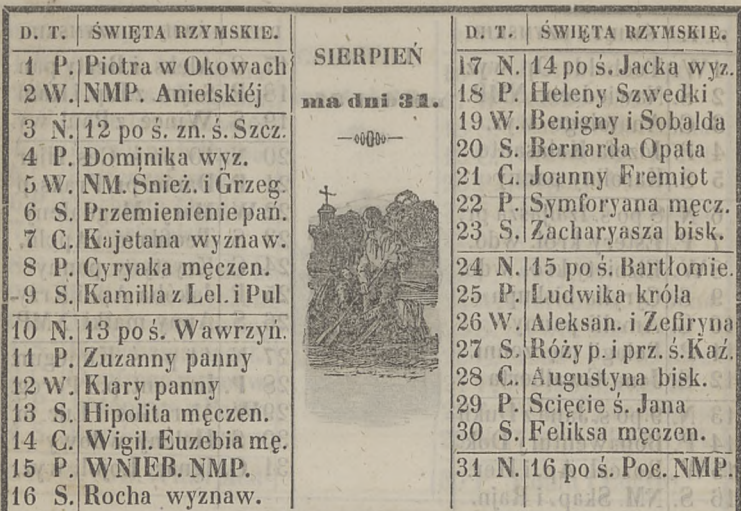 D. T. ŚWIĘTA RZYMSKIE.
1 P. Piotra w Okowach
2 W. NMP. Anielskiéj
3 N. 12 po ś. zn. ś. Szcz.
4 P. Dominika wyz.
5 W. NM. Śnież. i Grzeg.
6 S. Przemienienie pań.
7 C. Kajetana wyznaw.
8 P. Cyryaka męczen.
9 S. Kamilla z Lel. i Pul
10 N. 13 po ś. Wawrzyń.
11 P. Zuzanny panny
12 W. Klary panny
13 S. Hipolita męczen.
14 C. Wigil. Euzebia mę.
15 P. WNIEB. NMP.
16 S. Rocha wyznaw.
SIERPIEŃ
ma dni 31.
D. T. ŚWIĘTA RZYMSKIE.
17 N. 14 po ś. Jacka wyz.
18 P. Heleny Szwedki
19 W. Benigny i Sobalda
20 S. Bernarda Opata
21 C. Joanny Fremiot
22 P. Symforyana męcz.
23 S. Zacharyasza bisk.
24 N. 15 po ś. Bartłomie.
25 P. Ludwika króla
26 W. Aleksan. i Zefiryna
27 S. Róży p. i prz. ś. Kaź.
28 C. Augustyna bisk.
29 P. Scięcie ś. Jana
30 S. Feliksa męczen.
31 N. 16 po ś. Poc. NMP.